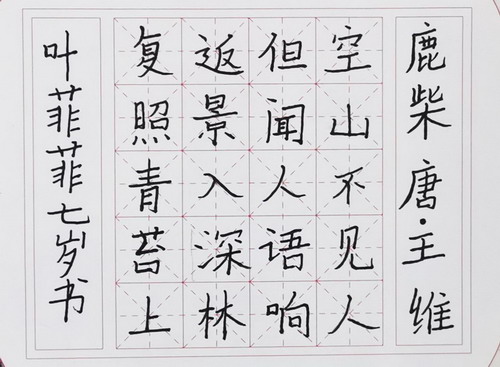 鹿柴 唐·王维
空山不见人
但闻人语响
返景入深林
复照青苔上
叶菲菲七岁书